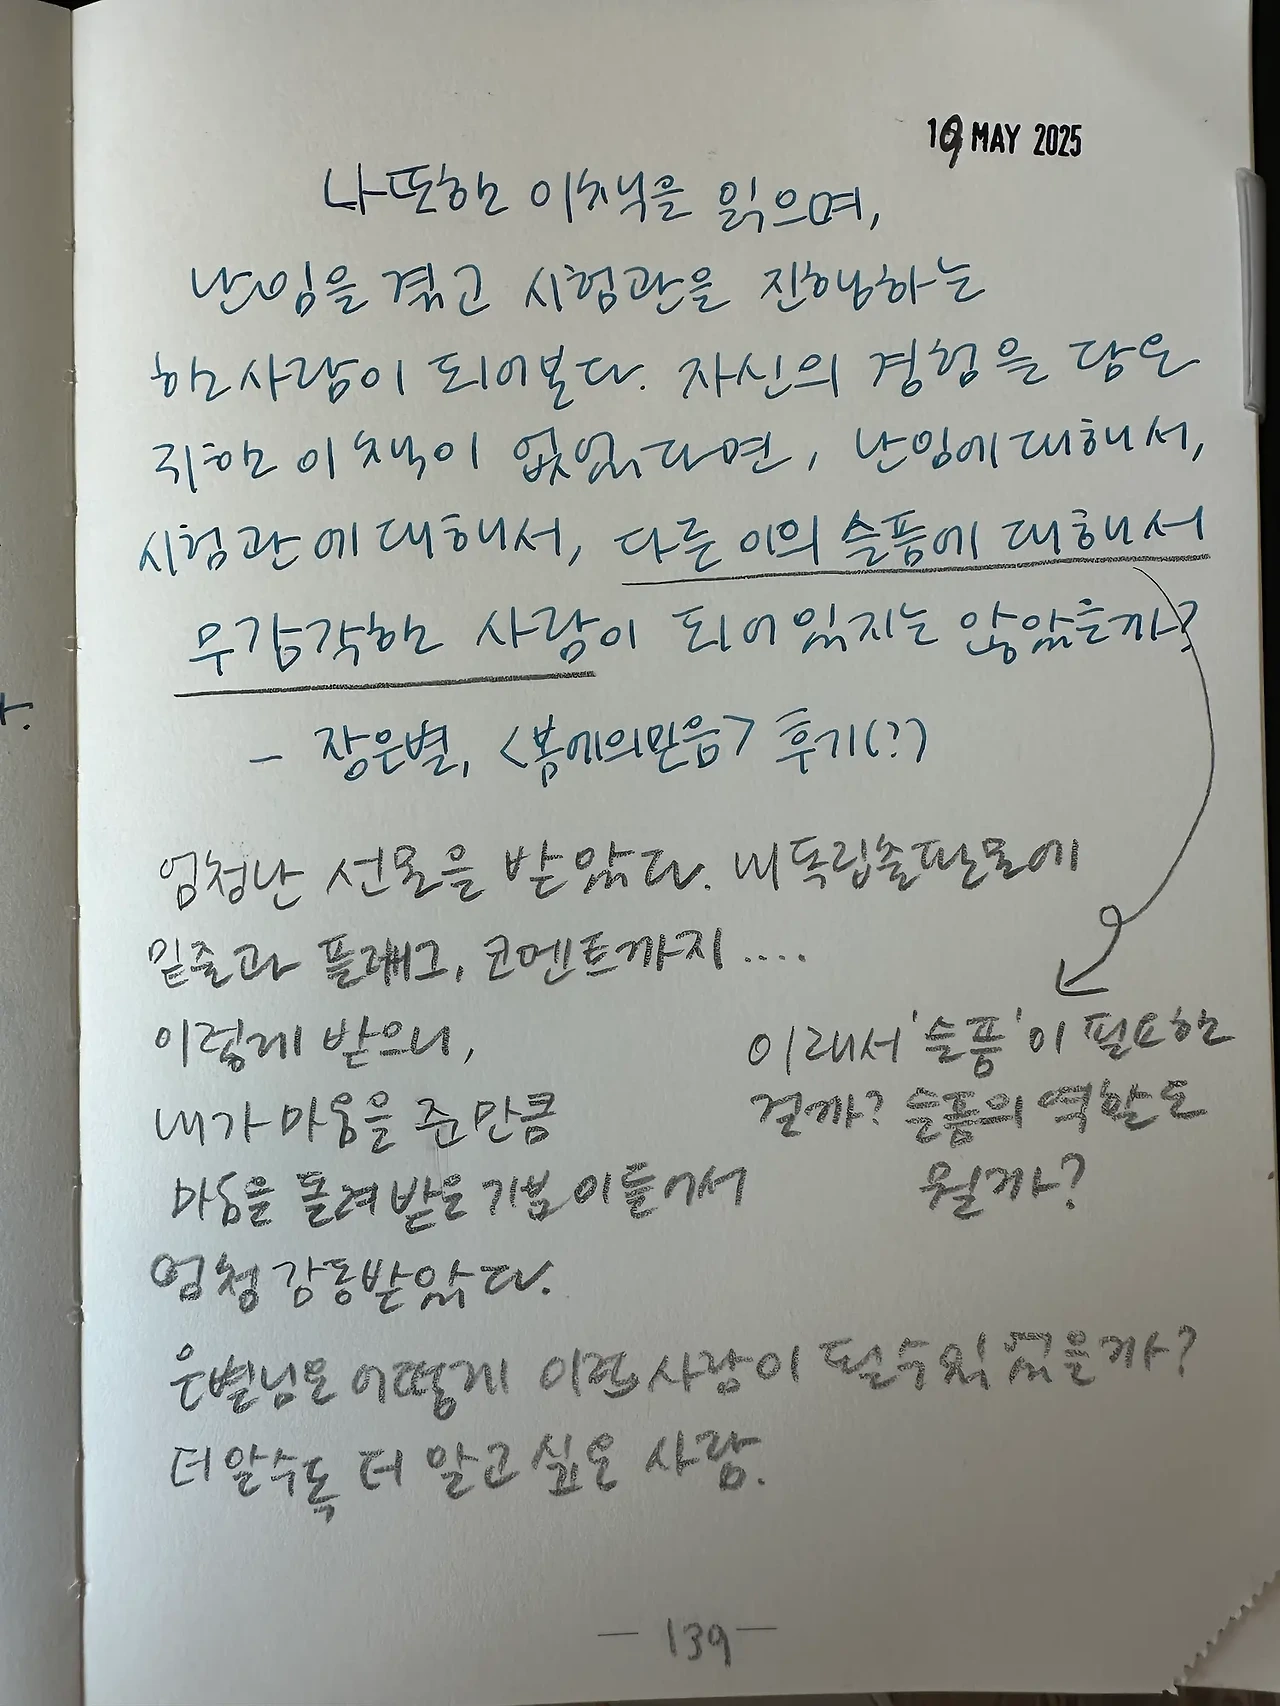 19 MAY 2025
나 또한 이 책을 읽으며,
난임을 겪고 시험관을 진행하는
한 사람이 되어본다. 자신의 경험을 담은
귀한 이 책이 없었다면, 난임에 대해서,
시험관에 대해서, 다른 이의 슬픔에 대해서
무감각한 사람이 되어있지는 않았을까?
- 장은별, <봄에의 믿음> 후기(?)
엄청난 선물을 받았다. 내 독립출판물에
밑줄과 플래그, 코멘트까지....
이렇게 받으니,
내가 마음을 준 만큼
마음을 돌려받은 기분이 들어서
엄청 감동받았다.
이래서 '슬픔'이 필요한
걸까? 슬픔의 역할도
뭘까?
은별님은 어떻게 이런 사람이 될 수 있었을까?
더 알수록 더 알고 싶은 사람.
- 139 -